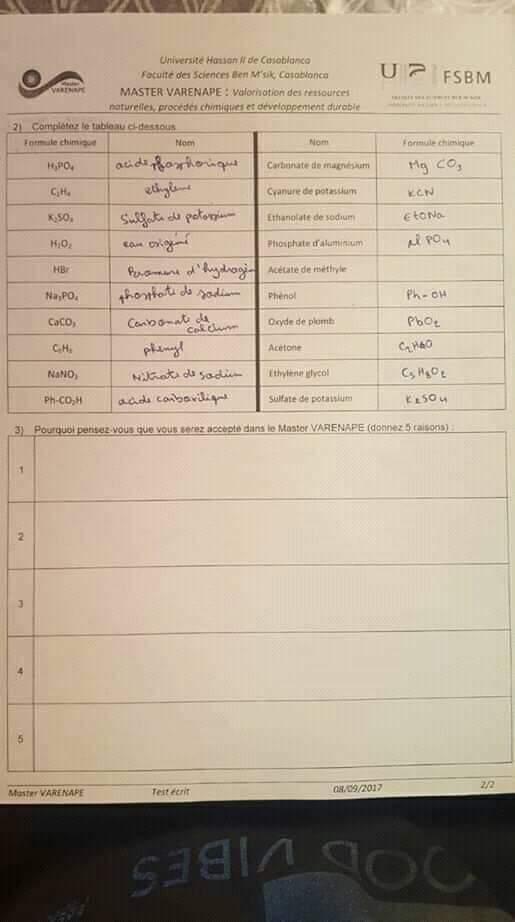 Université Hassan II de Casablanca
Faculté des Sciences Ben M'sik, Casablanca
MASTER VARENAPE : Valorisation des ressources
naturelles, procédés chimiques et développement durable
Master
VARENAPE
FSBM
2) Complétez le tableau ci-dessous
Formule chimique Nom Nom Formule chimique
H₃PO₄ acide phosphorique Carbonate de magnésium Mg CO₃
ethylene Cyanure de potassium KCN
Sulfate de potassium Ethanolate de sodium EtONa
H₂O₂ eau origéné Phosphate d'aluminium Al PO₄
HBr d'hydrogin Acétate de méthyle
Na₃PO₄ phosphate de sodium Phénol Ph-OH
CaCO₃ Carbonate de calcium Oxyde de plomb PbO₂
phenyl Acétone
NaNO₃ Nitrate de sodium Ethylène glycol C₅H₈O₂
Ph-CO₂H acide carboxilique Sulfate de potassium K₂SO₄
3) Pourquoi pensez-vous que vous serez accepté dans le Master VARENAPE (donnez 5 raisons) :
1
2
3
4
5
Master VARENAPE Test écrit 08/09/2017 2/2
VIBES